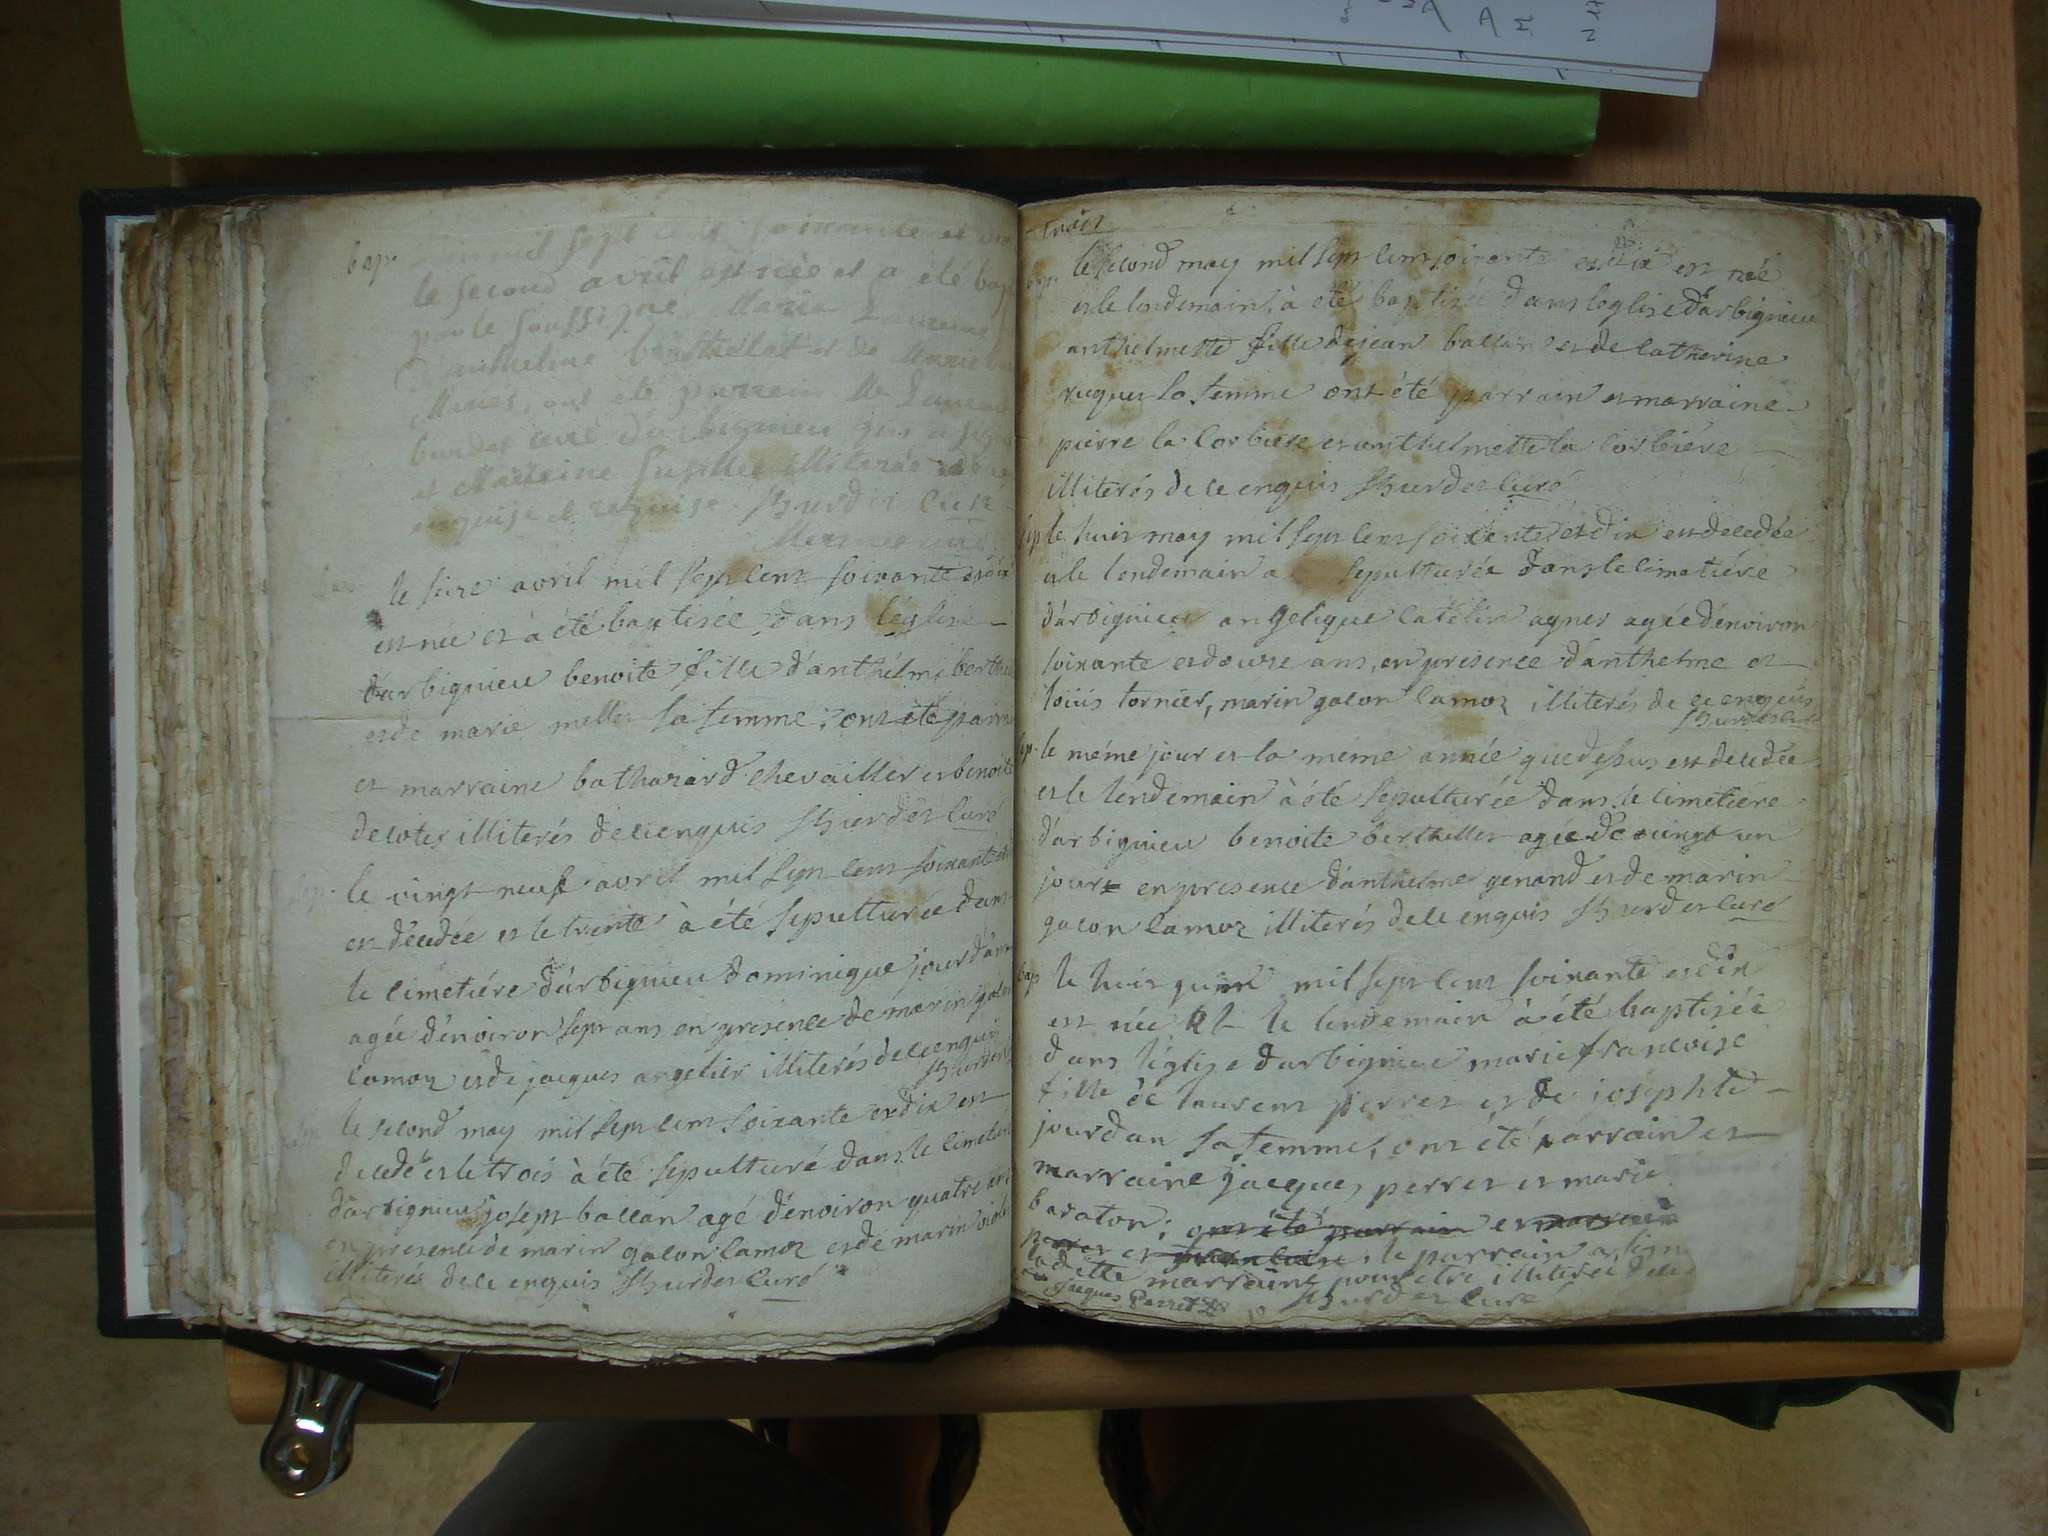 bap.
mil sept cent soixante et
le second avril est née et a été bap
par le soussigné Marie
d'anthelme berthelet et de Marie
ont été parrein Mr
burdet curé d'arbignieu qui a signé
et Marreine illiterée
enquise et requise. Burdet Curé
le seize avril mil sept cent soixante et dix
est née et à été baptisée dans léglise
d'arbignieu benoite fille d'anthelme berthe
et de marie mellet sa femme, ont été parrain
et marraine bathazard chevaillier et benoite
decotes illiterés de ce enquis Burdet Curé
sep. le vingt neuf avril mil sept cent soixante et
est décédée et le trente à été sepulturée dans
le cimetiére d'arbignieu dominique jourdan
agée d'énviron sept ans en presence de marin galon
lamoz et de jacques angelier illiterés de ce enquis
Burdet
le second may mil sept cent soixante et dix est
decedé et le trois à été sepulturé dans le cimetiére
d'arbignieu joseph ballan agé d'énviron quatre ans
en presence de marin galon lamoz et de marin
illiterés de ce enquis Burdet Curé
bap. le second may mil sept cent soixante et dix est née
et le lendemain à été baptisée dans léglise d'arbignieu
anthelmette fille de jean ballan et de catherine
ruques sa femme ont été parrain et marraine
pierre la Corbiére et anthelmette la corbiére
illiterés de ce enquis Burdet Curé
sep le huit may mil sept cent soixante et dix est decedée
et le lendemain a sepulturée dans le cimetiére
d'arbignieu angelique catélin agnes agée d'énviron
soixante et douze ans, en presence d'anthelme et
loüis tornier, marin galon lamoz illiterés de ce enquis
Burdet Curé
sep. le méme jour et la méme année que dessus est decedée
et le lendemain à été sepulturée dans le cimetiére
d'arbignieu benoite berthellet agée de vingt un
jours en presence d'anthelme genand et de marin
galon lamoz illiterés de ce enquis Burdet Curé
bap le huit juin mil sept cent soixante et dix
est née et le lendemain à été baptisée
dans l'église d'arbignieu marie françoise
fille de laurent perret et de josephte
jourdan sa femme, ont été parrain et
marraine jacques perret et marie
baraton; ont été parrain et marraine
perret et le parrain a signé
la ditte marraine pour etre illiterée de ce
Jacques Perret Burdet curé